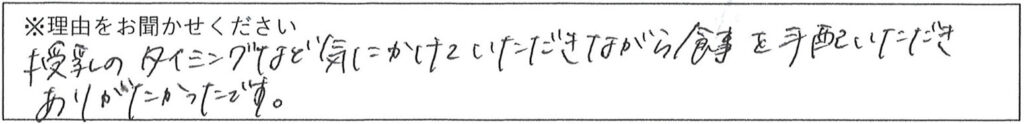 ※理由をお聞かせください
授乳のタイミングなど気にかけていただきながら食事を手配いただき
ありがたかったです。